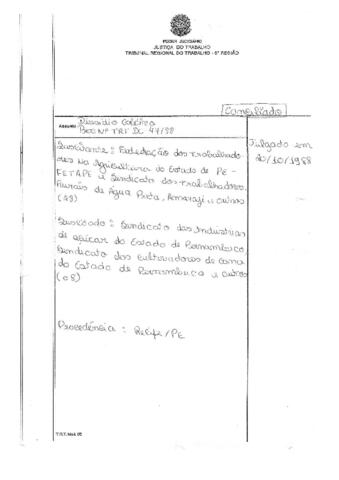 PODER JUDICIÁRIO
JUSTIÇA DO TRABALHO
TRIBUNAL REGIONAL DO TRABALHO - 6ª REGIÃO
Conciliado
Assunto: Dissídio Coletivo
Proc Nº TRT DC 47/88
Suscitante: Federação dos Trabalhado
res na Agricultura do Estado de PE -
FETAPE e Sindicato dos Trabalhadores
Rurais de Água Preta, Amaraji e outros
(43)
Julgado em
20/10/1988
Suscitado: Sindicato das Indústrias
de açúcar do Estado de Pernambuco,
Sindicato dos Cultivadores de Cana
do Estado de Pernambuco e outros
(08)
Procedência: Recife/PE
T.R.T. Mod. 05